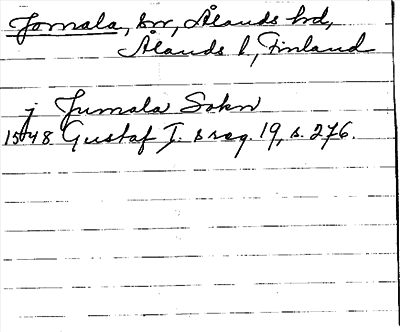 Jomala, sn, Ålands hd,
Ålands l, Finland
j Jumala Sokn
1548 Gustaf I. s reg. 19, s. 276.